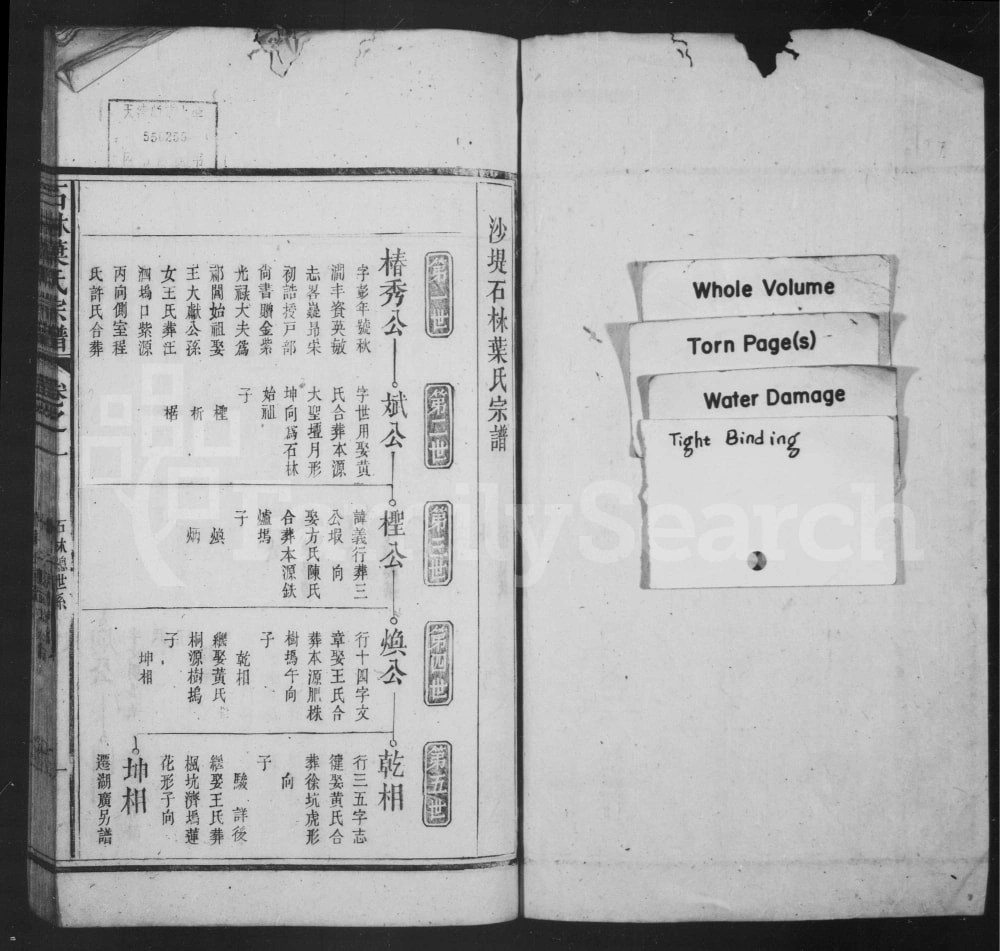 沙堤石林葉氏宗譜
第一世
椿秀公
字彭年號秋
澗丰資英敏
志畧嶷昻宋
初誥授戸部
尙書贈金紫
光祿大夫爲
祁閶始祖娶
王大獻公孫
女王氏葬汪
泗塢口紫源
丙向側室程
氏許氏合葬
第二世
斌公
字世用娶黄
氏合葬本源
大聖壇月形
坤向爲石林
始祖
子
檉
析
椐
第三世
檉公
諱義行葬三
公塅 向
娶方氏陳氏
合葬本源鉄
爐塢
子
煥
炳
第四世
煥公
行十四字文
章娶王氏合
葬本源肥株
樹塢午向
子
乾相
繼娶黃氏
桐源樹塢
子
坤相
第五世
乾相
行三五字志
健娶黄氏合
葬徐坑虎形
向
子
駿 詳後
繼娶王氏葬
楓坑濟塢蓮
花形子向
坤相
遷湖廣另譜
石林葉氏宗譜
卷之一
石林總世系
一
550255
Whole Volume
Torn Page(s)
Water Damage
Tight Binding
FamilySearch